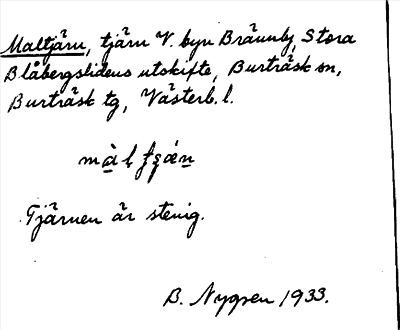 Maltjärn, tjärn V. byn Bränneby, Stora
Blåbergslidens utskifte, Burträsk sn,
Burträsk tg, Västerb. l.
Tjärnen är stenig.
B. Nygren 1933.